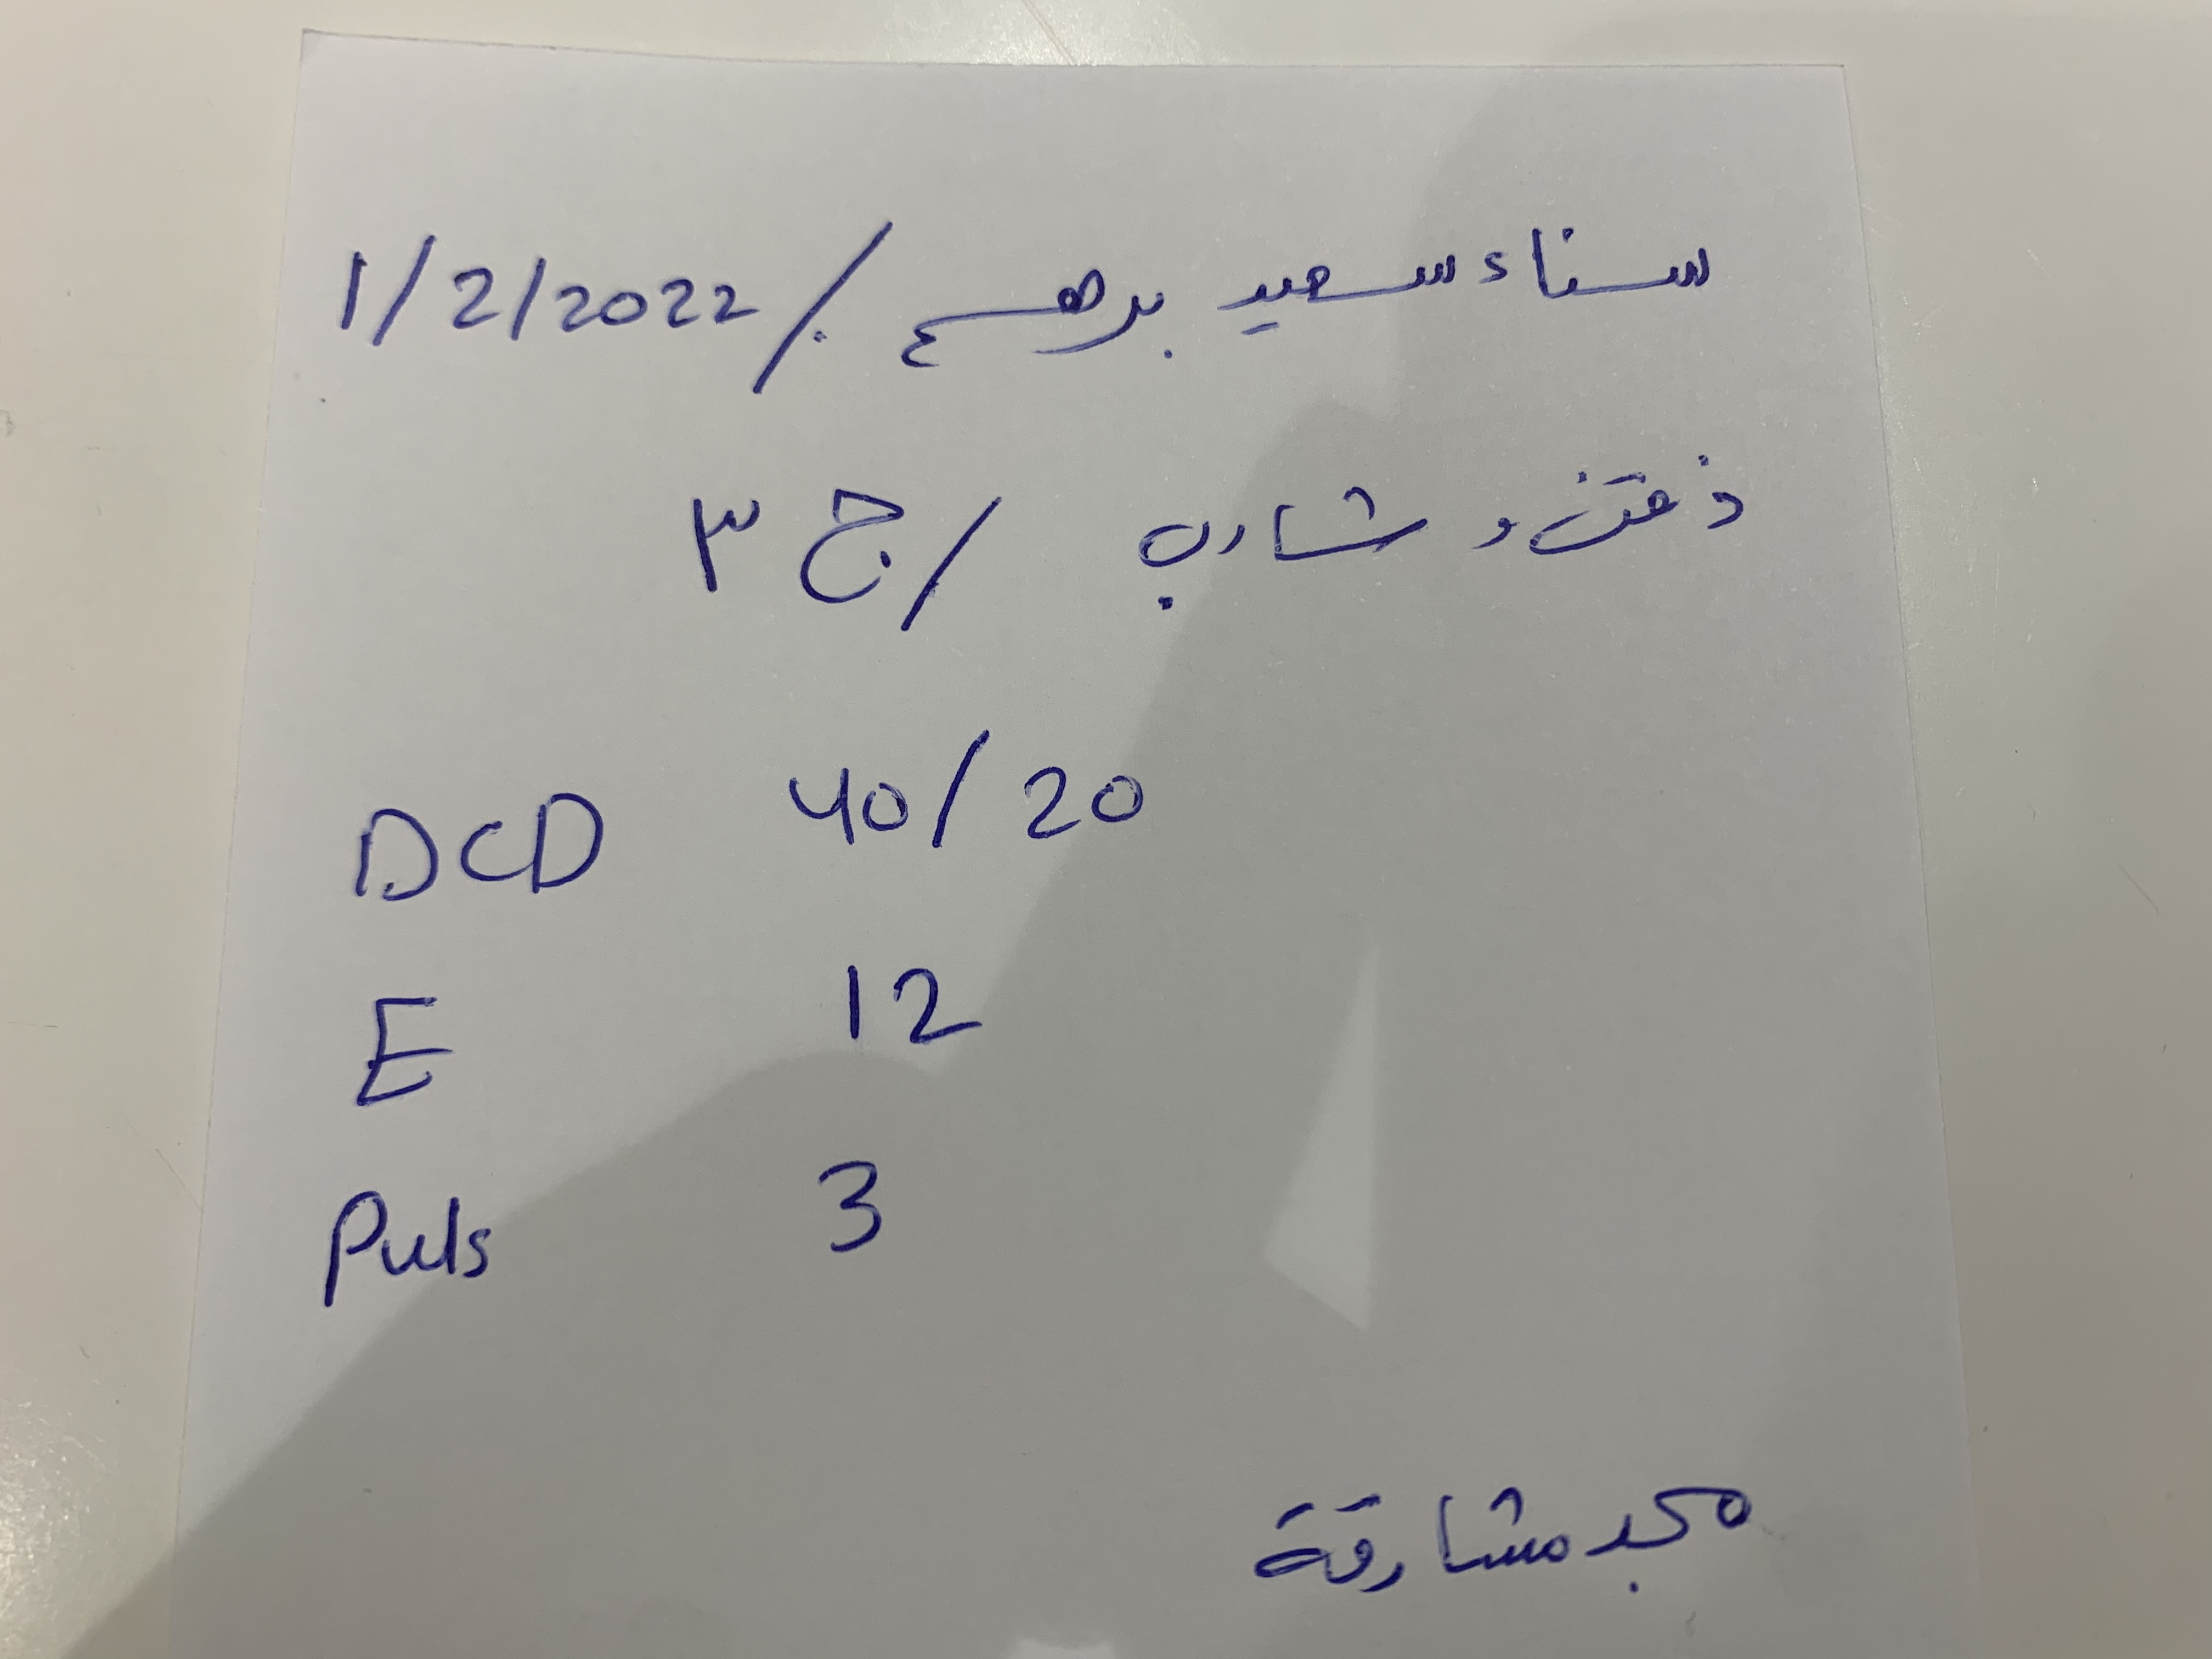 سناء سعيد برهم / 1/2/2022
ذقن و شارب / ج ٣
DCD 40/20
E 12
Puls 3
مجد مشارقة